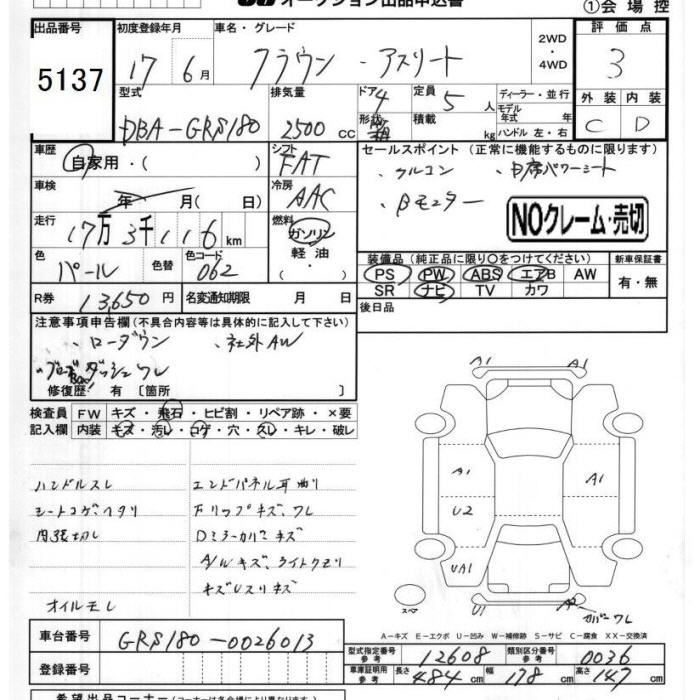 オークション出品申込書
①会場控
出品番号
5137
初度登録年月
17 6月
車名・グレード
クラウン ・アスリート
2WD
・
4WD
評価点
3
外装 内装
C D
型式
DBA-GRS180
排気量
2500 cc
ドア 4
形状 箱
定員 5 人
積載 kg
ディーラー・並行
モデル年式 年
ハンドル 左・右
車歴
自家用・( )
シフト
FAT
車検
年 月(日)
冷房
AAC
走行
17万3千116km
燃料
ガソリン
軽油
・( )
色
パール
色替
色コード
062
R券
13,650円
名変通知期限 月 日
セールスポイント(正常に機能するものに限ります)
・クルコン ・D席パワーシート
・Bモニター
NOクレーム・売切
装備品(純正品に限り○をつけてください)
PS PW ABS エアB AW
SR ナビ TV カワ
新車保証書
有・無
後日品
注意事項申告欄(不具合内容等は具体的に記入して下さい)
・ローダウン ・社外AW
ダッシュワレ
修復歴:有〔箇所 〕
検査員記入欄
FW キズ・飛石・ヒビ割・リペア跡・×要
内装 キズ・汚レ・コゲ・穴・スレ・キレ・破レ
ハンドルスレ
シートコゲヘタリ
内張切レ
オイルモレ
エンドパネル耳曲リ
Fリップキズ、ワレ
Dミラーカバーキズ
A/Wキズ、ライトクモリ
キズUスリキズ
A1 A1
A1 A1
U2
UA1
スペア
U1
カバーワレ
A-キズ E-エクボ U-凹み W-補修跡 S-サビ C-腐食 XX-交換済
車台番号
GRS180-0026013
登録番号
型式指定番号 参考 12608
類別区分番号 参考 0036
車庫証明用 参考 長さ 484cm 幅 178cm 高さ 147cm
希望出品コーナー